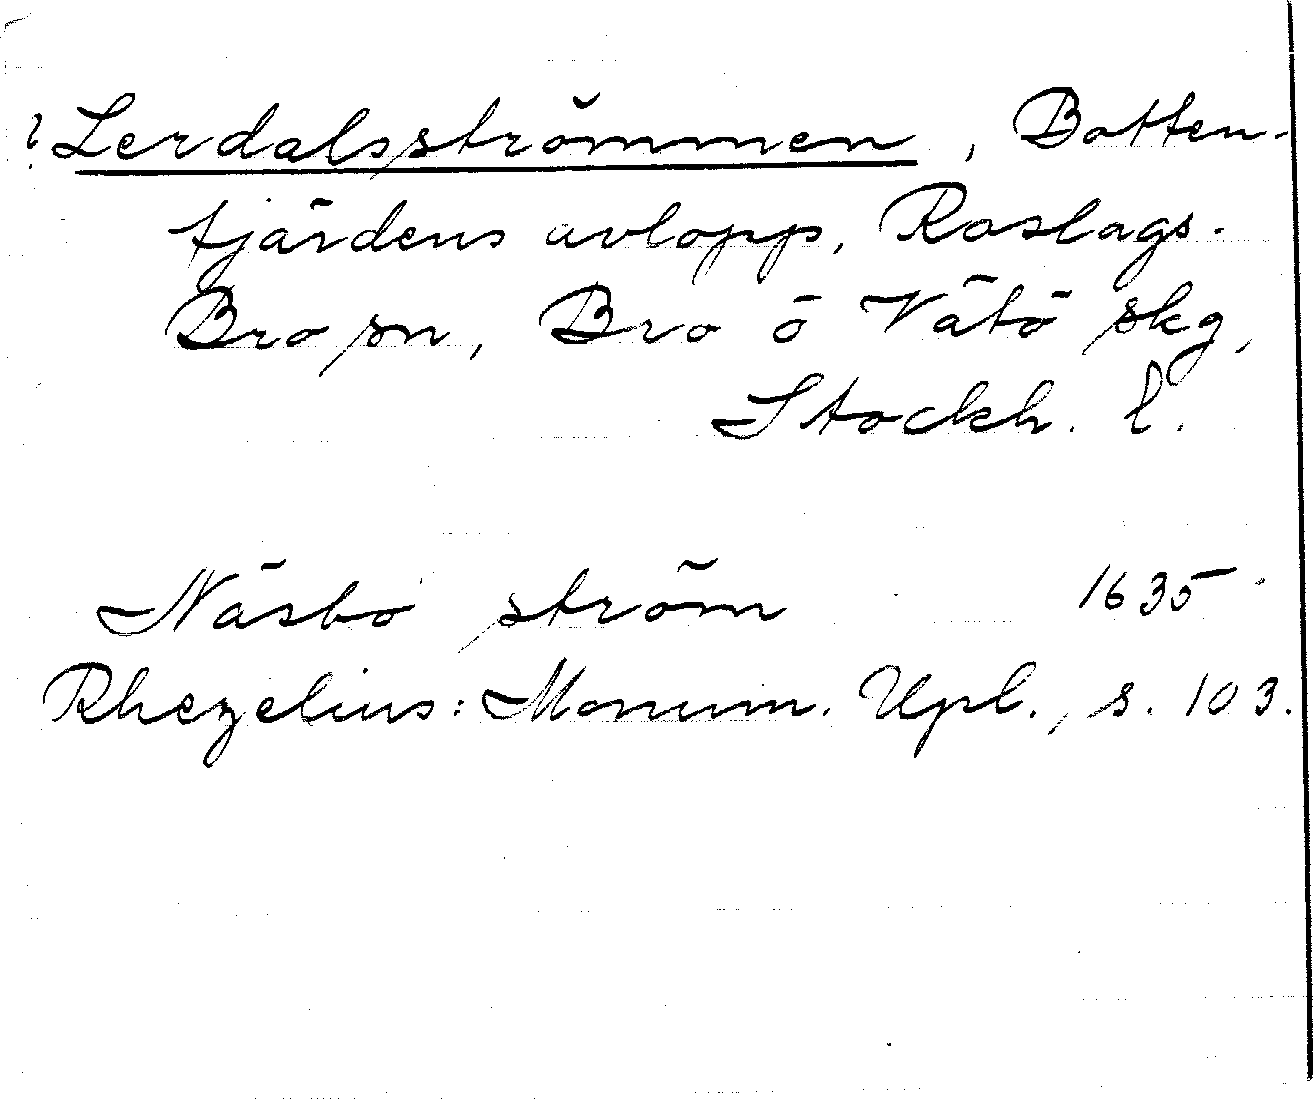 ? Lerdalsströmmen, Botten-
fjärdens avlopp, Roslags-
Bro sn, Bro o Vätö skg,
Stockh. l.
Näsbo ström 1635
Rhezelius: Monum. Upl., s. 103.